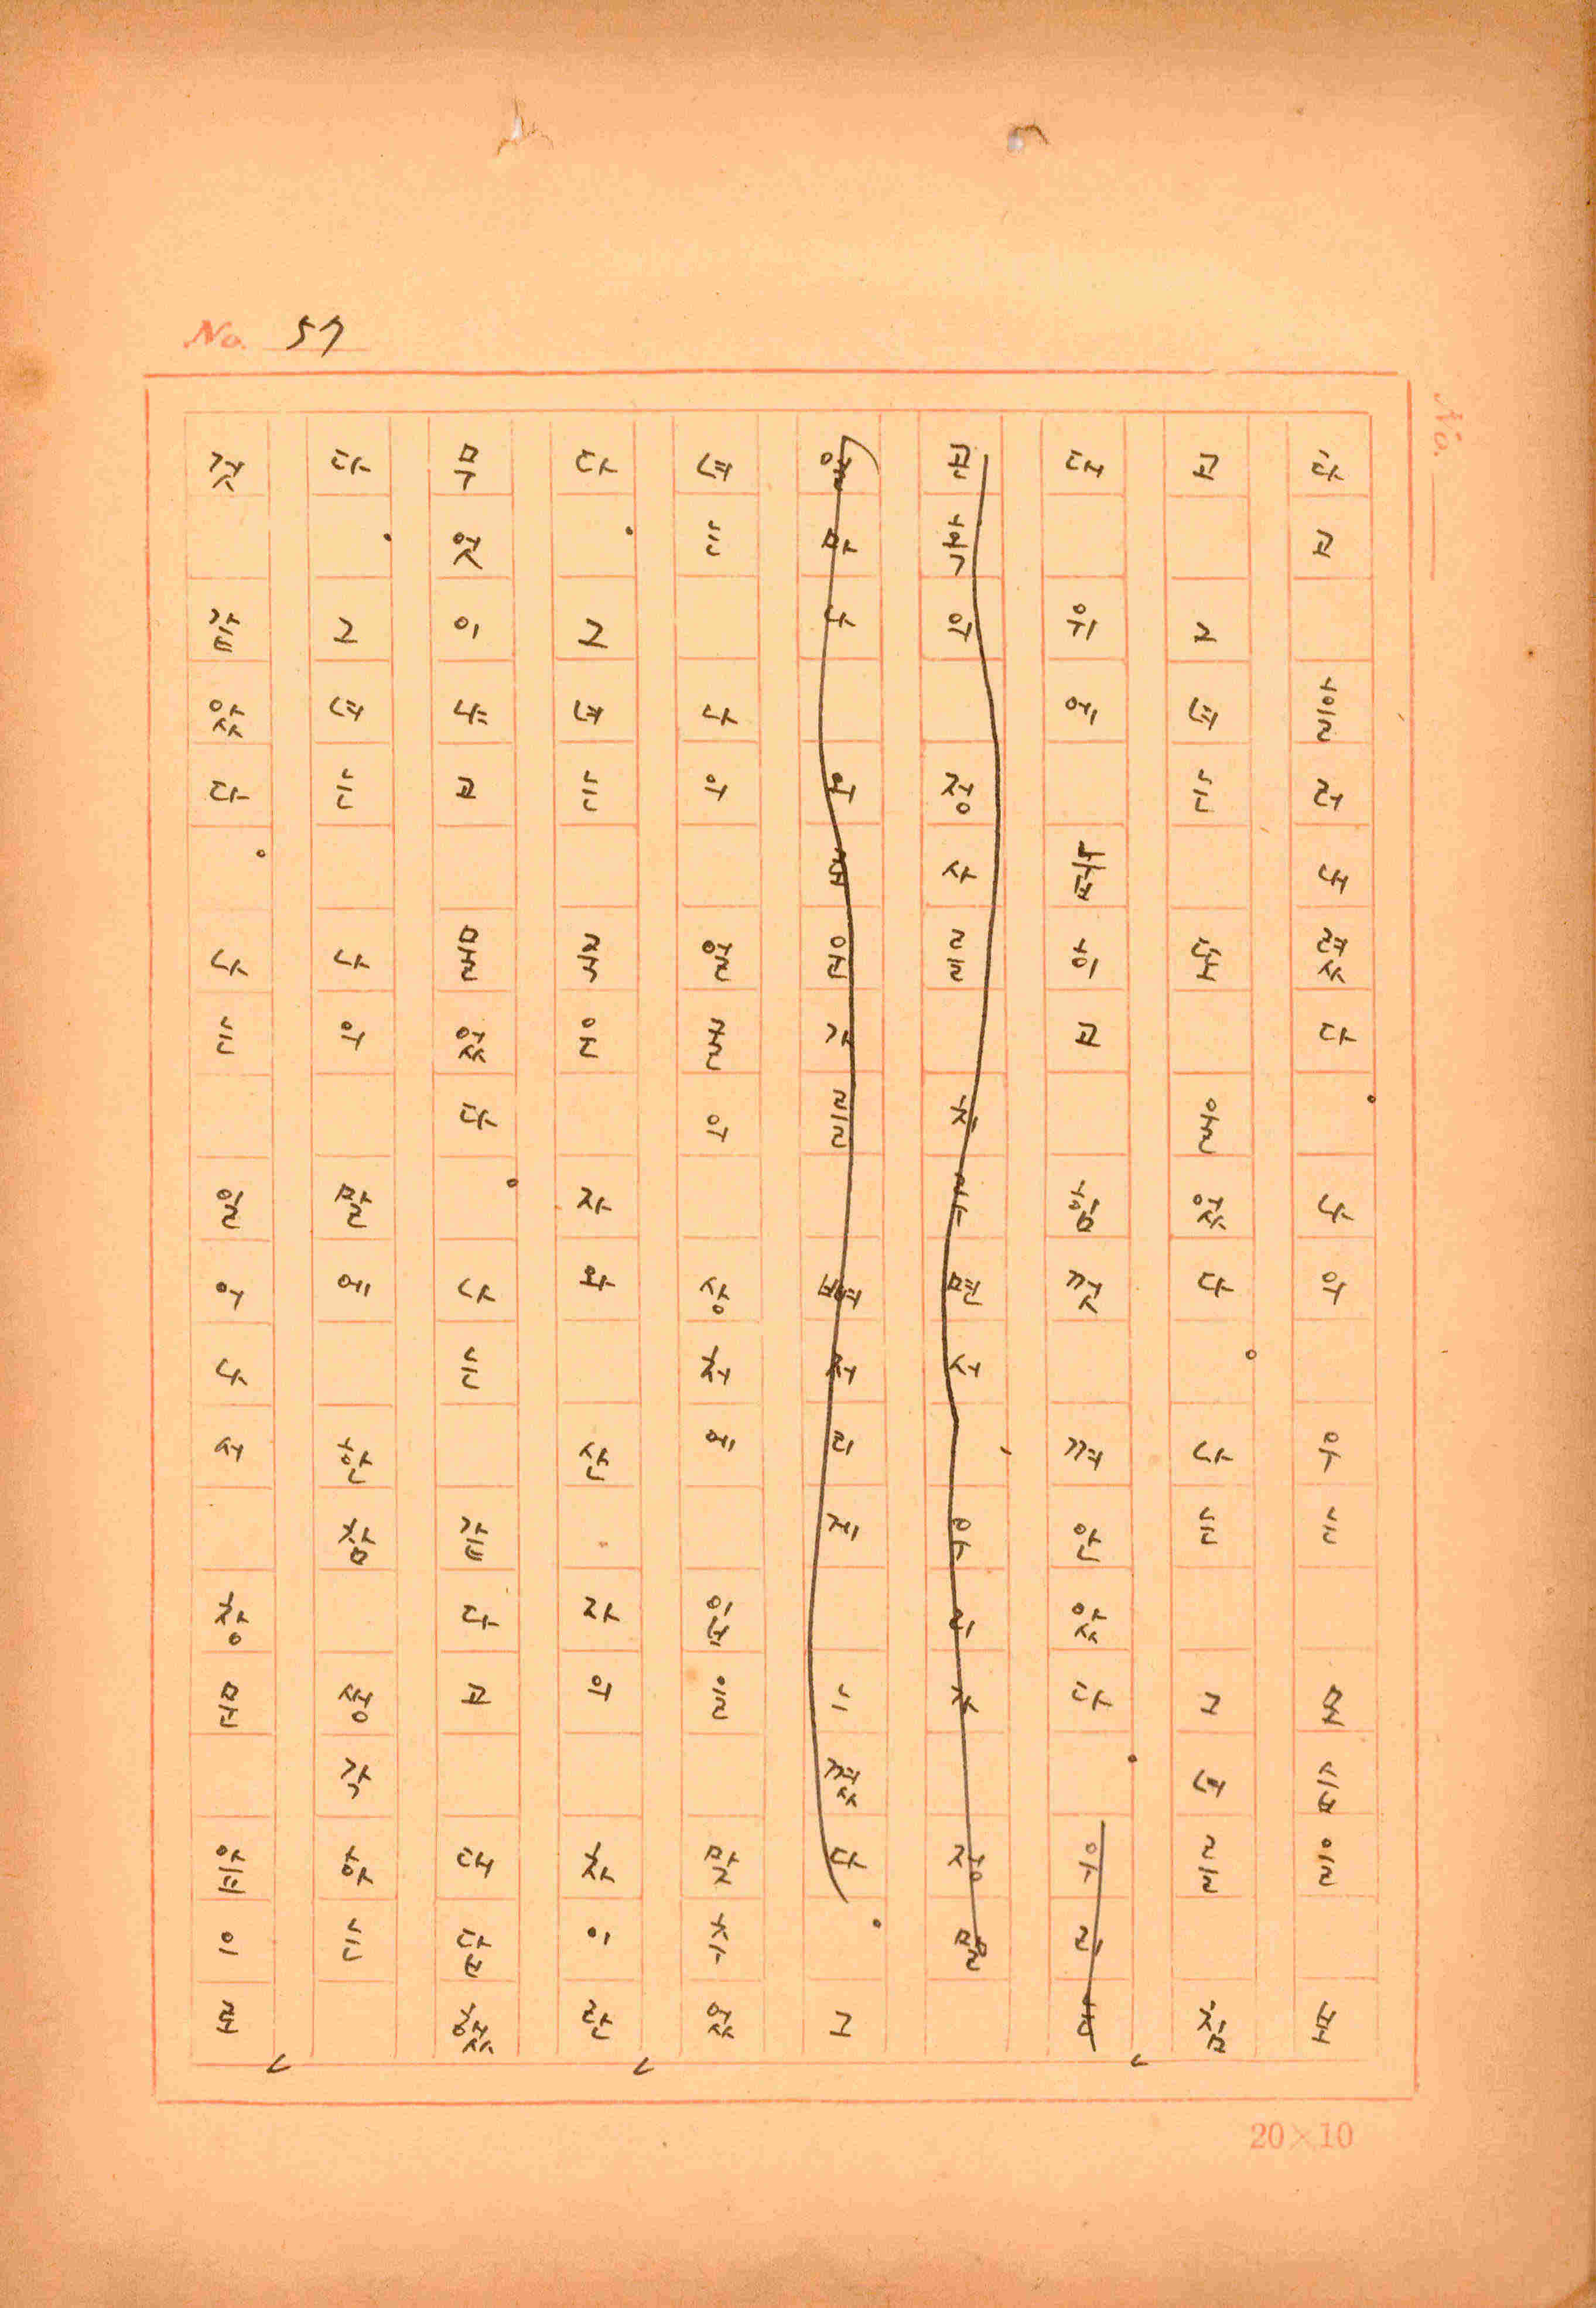 No. 57
타고 흘러내렸다. 나의 우는 모습을 보
고 그녀는 또 울었다. 나는 그녀를 침
대 위에 뉘이고 힘껏 껴안았다. 우리
정사를 치루면서 우리가 정말
얼마나 뼈저리게 느꼈다. 그
녀는 나의 얼굴의 상처에 입을 맞추었
다. 그녀는 죽은 자와 산 자의 차이란
무엇이냐고 물었다. 나는 같다고 대답했
다. 그녀는 나의 말에 한참 생각하는
것 같았다. 나는 일어나서 창문 앞으로
No.
20×10